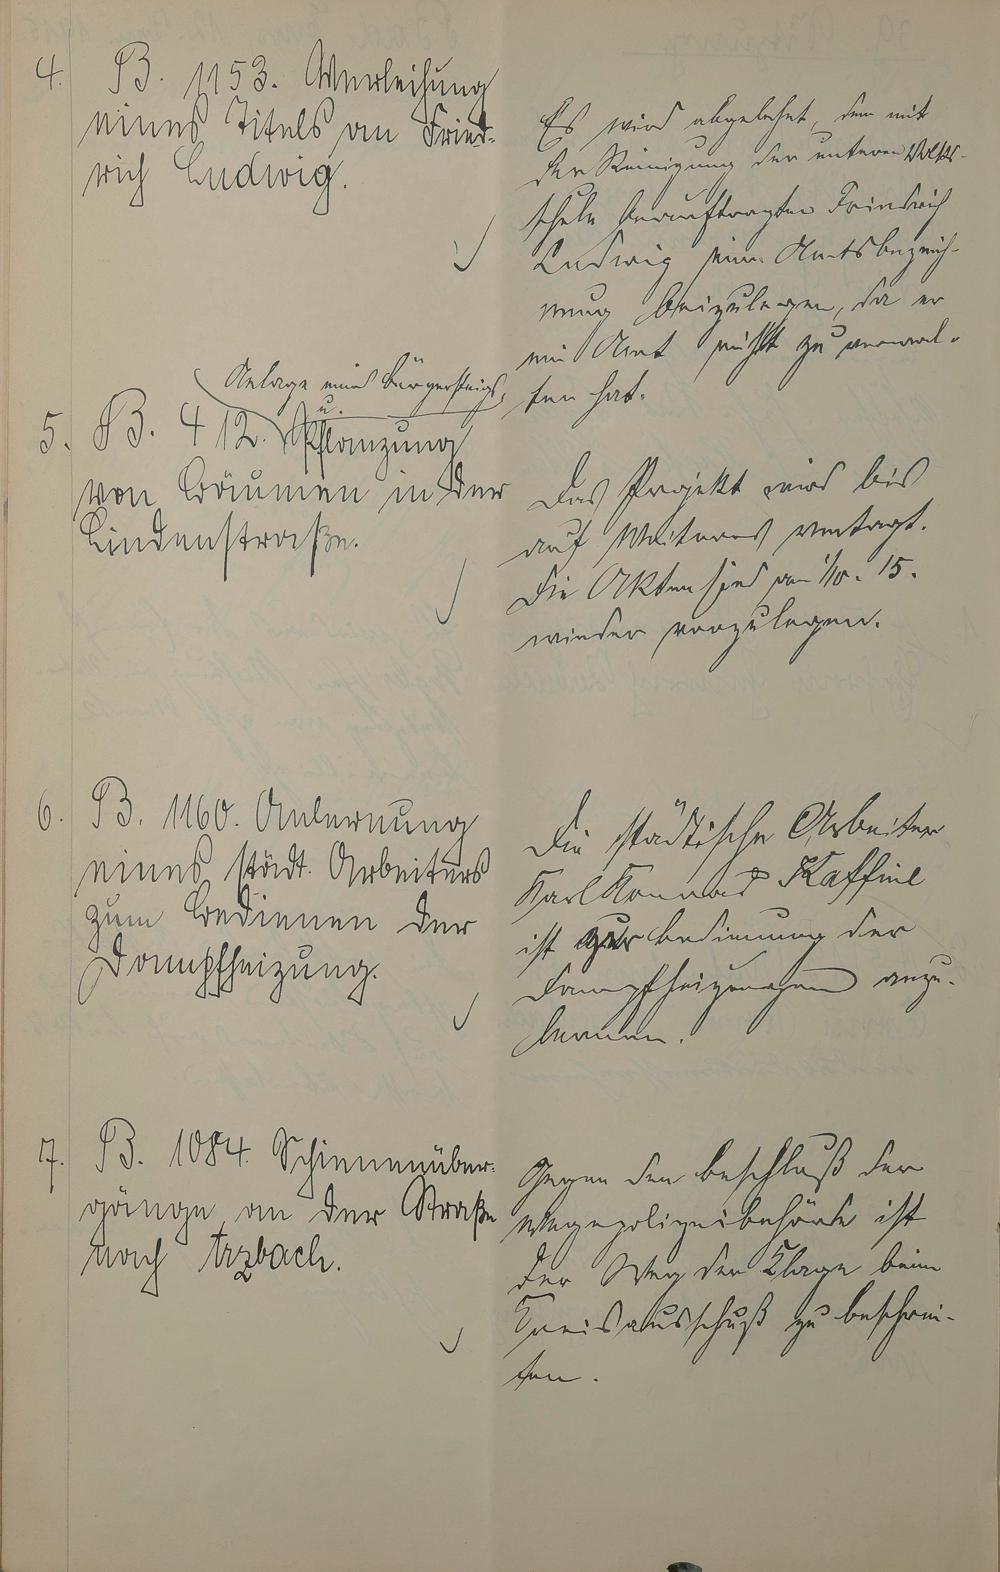 4. B. 1153. Verleihung
eines Titels an Fried-
rich Ludwig.
Es wird abgelehnt, dem mit
der Reinigung der unteren Volks-
schule beauftragten Friedrich
Ludwig eine Amtsbezeich-
nung beizulegen, da er
ein Amt nicht zu verwal-
ten hat.
Anlage eines Bürgersteigs,
u.
5. B. 412. Pflanzung
von Bäumen in der
Lindenstraße.
Das Projekt wird bis
auf Weiteres vertagt.
Die Akten sind am 1/10. 15.
wieder vorzulegen.
6. B. 1160. Anlernung
eines städt. Arbeiters
zum Bedienen der
Dampfheizung.
Die städtische Arbeiter
Karl Konrad Kaffine
ist zur Bedienung der
Dampfheizungen anzu-
lernen.
7. B. 1084. Schienenüber-
gänge an der Straße
nach Arzbach.
Gegen den Beschluß der
Wegepolizeibehörde ist
der Weg der Klage beim
Kreisausschuß zu beschrei-
ten.